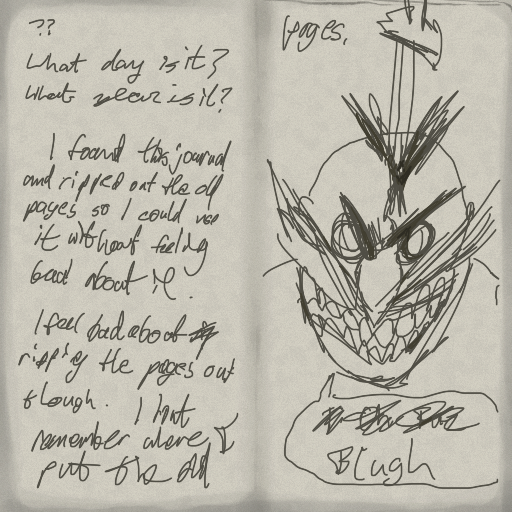 ??
What day is it?
What year is it?
I found this journal
and ripped out the old
pages so I could use
it without feeling
bad about it.
I feel bad about
ripping the pages out
though. I don't
remember where I
put the old
pages.
Blugh